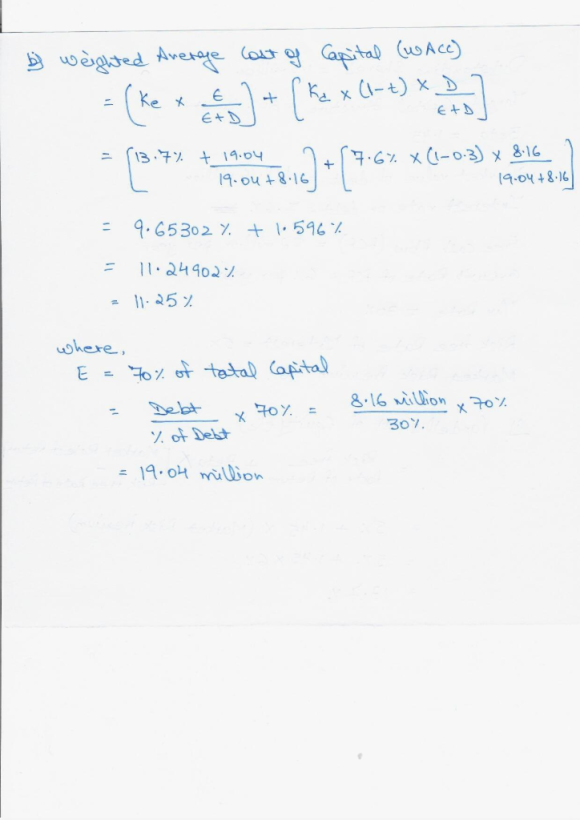 b) Weighted Average Cost of Capital (WACC)
= (Ke × E/E+D) + [Kd × (1-t) × D/E+D]
= [13.7% + 19.04/19.04+8.16] + [7.6% × (1-0.3) × 8.16/19.04+8.16]
= 9.65302% + 1.596%
= 11.24902%
= 11.25%
where,
E = 70% of total Capital
= Debt/% of Debt × 70% = 8.16 million/30% × 70%
= 19.04 million